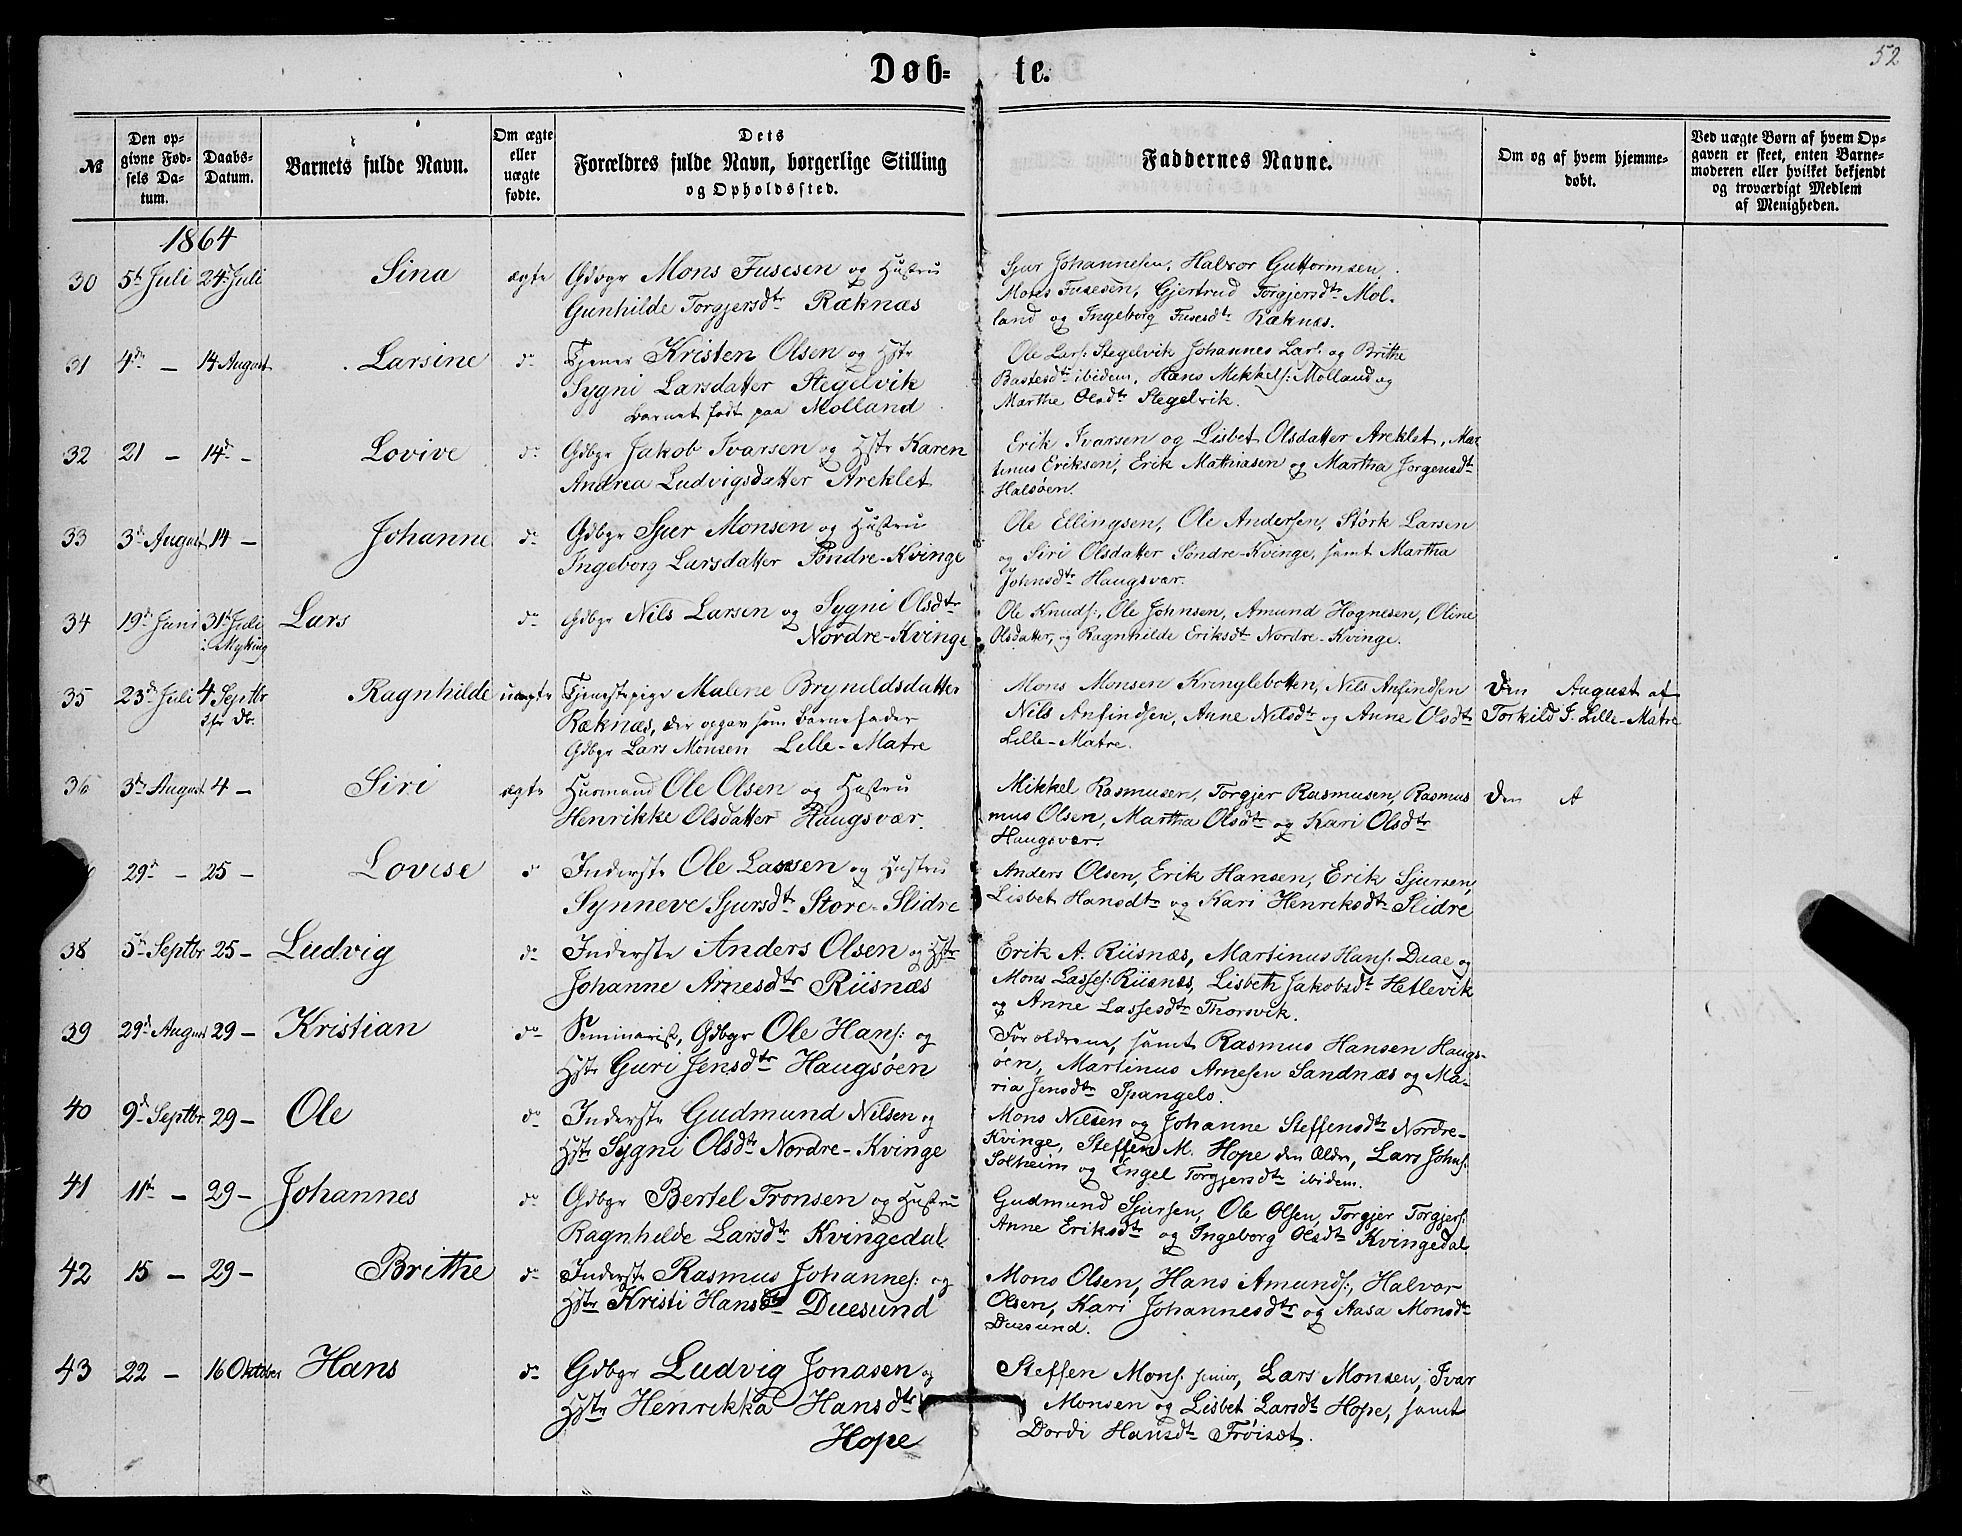 52
Døb- te.
№
Den op-
givne Fød-
sels Da-
tum.
Daabs-
Datum.
Barnets fulde Navn.
Om ægte
eller
uægte
fødte.
Dets
Forældres fulde Navn, borgerlige Stilling
og Opholdssted.
Faddernes Navne.
Om og af hvem hjemme-
døbt.
Ved uægte Børn af hvem Op-
gaven er skeet, enten Barne-
moderen eller hvilket bekjendt
og troværdigt Medlem
af Menigheden.
1864
30 5te Juli 24de Juli Sina ægte Gdbgr Mons Fusesen og Hustru
Gunhilde Torgjersdtr Ræknæs
Sjur Johannesen, Halvor Guttormsen,
Mons Fusesen, Gjertrud Torgjersdtr Mol-
land og Ingeborg Fusesdtr Ræknæs.
31 4de — 14 August Larsine do Tjener Kristen Olsen og Hstr
Sygni Larsdatter Stegelvik
Barnet født paa Molland
Ole Lars: Stegelvik Johannes Lars: og Brithe
Bastesdtr ibidem, Hans Mikkels: Molland og
Marthe Olsdtr Stegelvik.
32 21 — 14de — Lovive do Gdbgr Jakob Ivarsen og Hstr Karen
Andrea Ludvigsdatter Areklet
Erik Ivarsen og Lisbet Olsdatter Areklet, Mar
tinus Eriksen, Erik Mathiasen og Martha Jørgensdtr
Halsøen.
33 3de August 14 — Johanne do Gdbgr Sjur Monsen og Hustru
Ingeborg Larsdatter Søndre-Kvinge
Ole Ellingsen, Ole Andersen, Størk Larsen
og Siri Olsdatter Søndre-Kvinge, samt Martha
Johnsdtr Haugsvær.
34 19de Juni 31te Juli Lars do Gdbgr Nils Larsen og Sygni Olsdtr
i Myking
Nordre-Kvinge
Ole Knuds: Ole Johnsen, Amund Hognesen, Oline
Olsdatter, og Ragnhilde Eriksdtr Nordre-Kvinge.
35 23de Juli 4 Septbr Ragnhilde uægte Tjenestepige Malene Brynildsdatter
Ræknæs, der opgav som Barnefader
Gdbgr Lars Monsen Lille-Matre
Mons Monsen Kringlebotten, Nils Anfindsen
Nils Anfindsen, Anne Nilsdtr og Anne Olsdtr
Lille-Matre.
Den August af
Torkild J. Lille-Matre
36 3de August 4 — Siri ægte Husmand Ole Olsen og Hustru
Henrikke Olsdatter Haugsvær.
Mikkel Rasmusen, Torgjer Rasmusen, Rasmus
mus Olsen, Martha Olsdtr og Kari Olsdtr
Haugsvær.
Den A
29de — 25 — Lovise Inderste Ole Lassen og Hustru
Synneve Sjursdtr Store-Slidre
Anders Olsen, Erik Hansen, Erik Sjursen,
Lisbet Hansdtr og Kari Henriksdtr Slidre
38 5te Septbr 25 — Ludvig do Inderste Anders Olsen og Hstr
Johanne Arnesdtr Riisnæs
Erik A. Riisnæs, Martinus Hans: Duae og
Mons Lasses: Riisnæs, Lisbeth Jakobsdtr Hetlevik
og Anne Lassesdtr Thorsvik.
39 29de August 29 — Kristian do Seminarist, Gdbgr Ole Hans: og
Hstr Guri Jensdtr Haugsøen
Forældrene, samt Rasmus Hansen Haugs-
øen, Martinus Arnesen Sandnæs og Ma-
ria Jensdtr Spangelo.
40 9de Septbr 29 — Ole do Inderste Gudmund Nilsen og
Hstr Sygni Olsdtr Nordre-Kvinge
Mons Nilsen og Johanne Steffensdtr Nordre-
Kvinge, Steffen M. Hope den Ældre, Lars Johns:
Solheim og Engel Torgjersdtr ibidem.
41 11te — 29 — Johannes do Gdbgr Bertel Tronsen og Hustru
Ragnhilde Larsdtr Kvingedal
Gudmund Sjursen, Ole Olsen, Torgjer Torgjers:
Anne Eriksdtr og Ingeborg Olsdtr Kvingedal
42 15 — 29 — Brithe do Inderste Rasmus Johannes: og
Hstr Kristi Hansdtr Duesund
Mons Olsen, Hans Amunds:, Halvor
Olsen, Kari Johannesdtr og Aasa Monsdtr
Duesund.
43 22 — 16 Oktober Hans do Gdbgr Ludvig Jonasen og
Hstr Henrikka Hansdtr
Hope
Steffen Mons: junior, Lars Monsen, Ivar
Monsen og Lisbet Larsdtr Hope, samt
Dordi Hansdtr Frøiset.